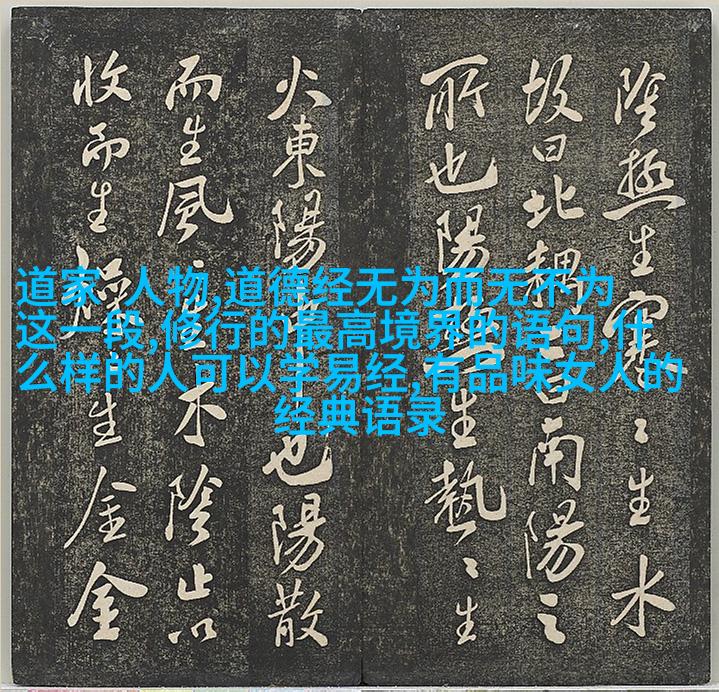 道家 人物,道德经无为而无不为
这一段,修行的最高境界的语句,什
么样的人可以学易经,有品味女人的
经典语录
陰極生寒〻生水
故曰北耦也曰南陽之
所也陽極生熱〻生
火東陽也陽散
而生風〻生木陰止以
收而生燥〻生金金